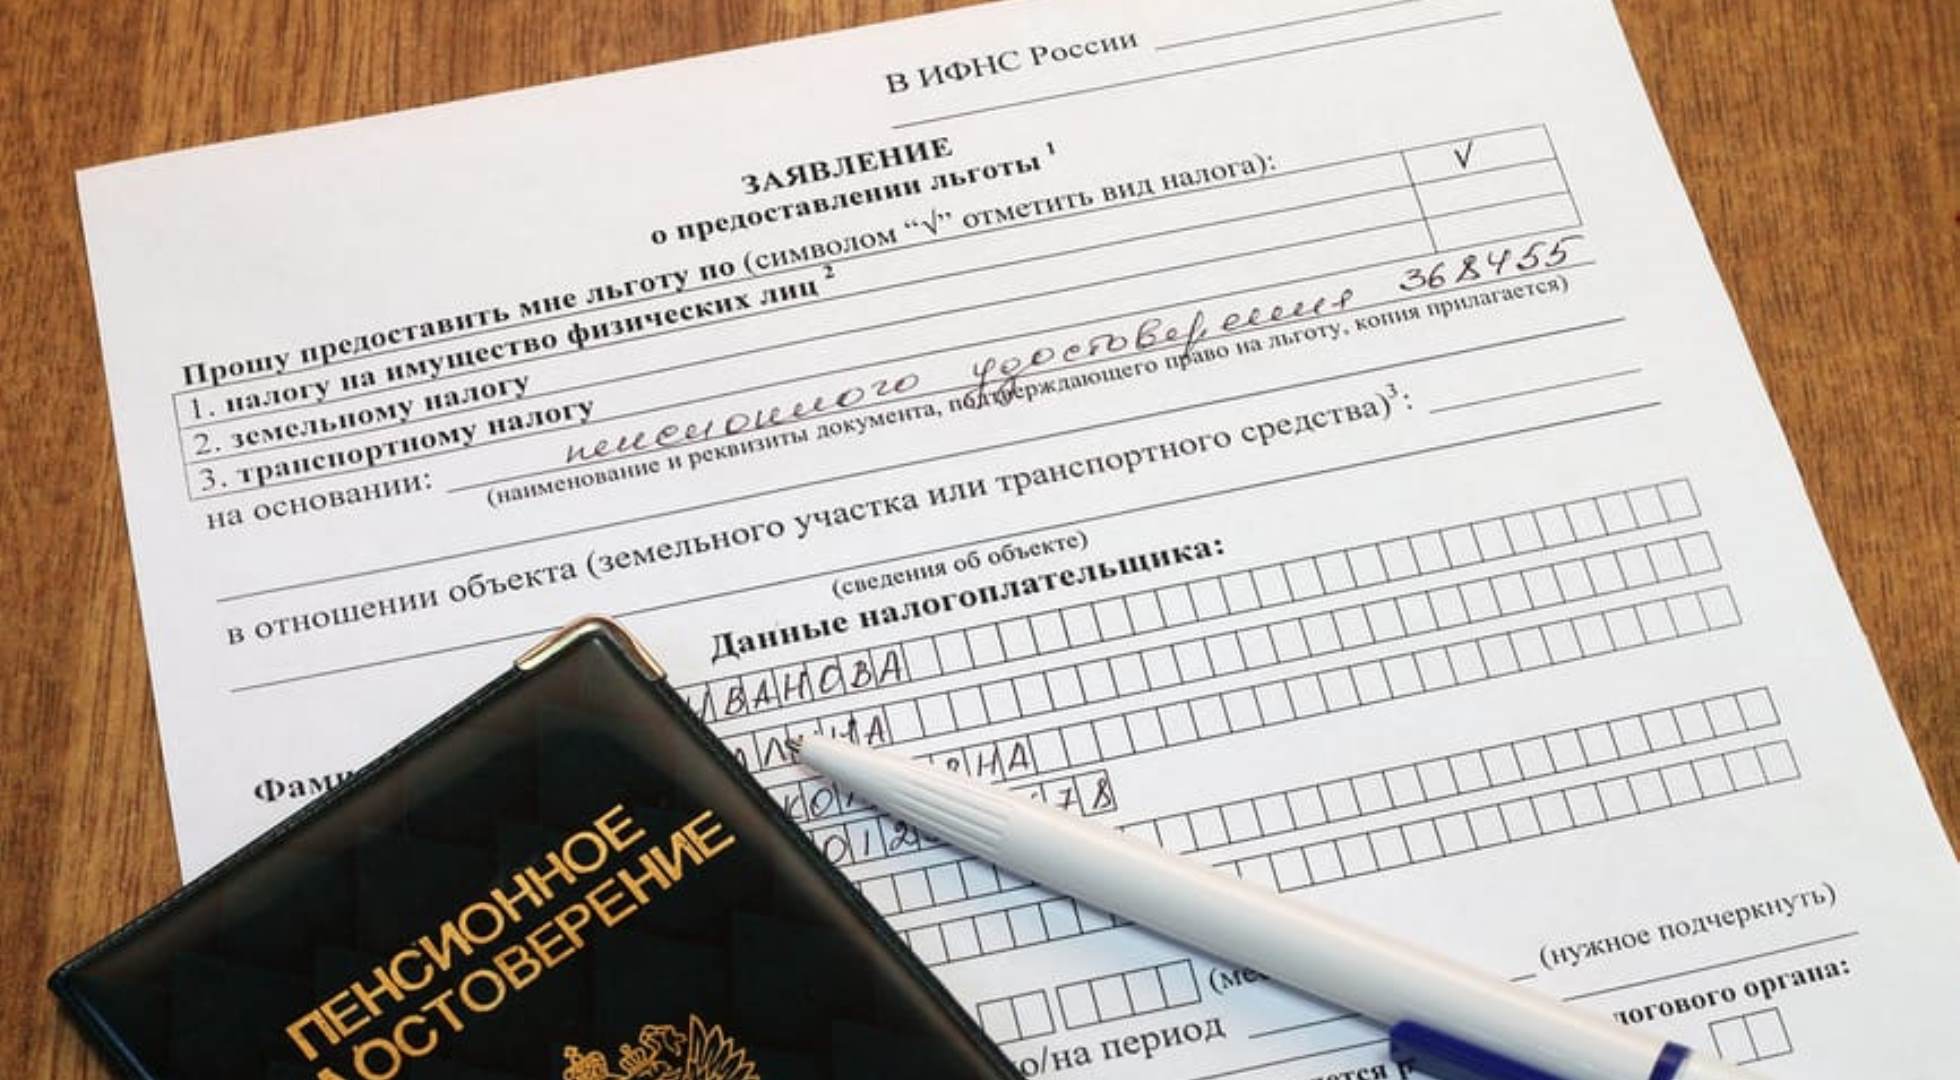 В ИФНС России
ЗАЯВЛЕНИЕ
о предоставлении льготы 1
Прошу предоставить мне льготу по (символом “√” отметить вид налога):
1. налогу на имущество физических лиц 2 √
2. земельному налогу
3. транспортному налогу
на основании: пенсионного удостоверения 368455
(наименование и реквизиты документа, подтверждающего право на льготу, копия прилагается)
в отношении объекта (земельного участка или транспортного средства)3:
(сведения об объекте)
Данные налогоплательщика:
ИВАНОВА
(нужное подчеркнуть)
о/на период
логового органа:
ПЕНСИОННОЕ
ДОСТОВЕРЕНИЕ